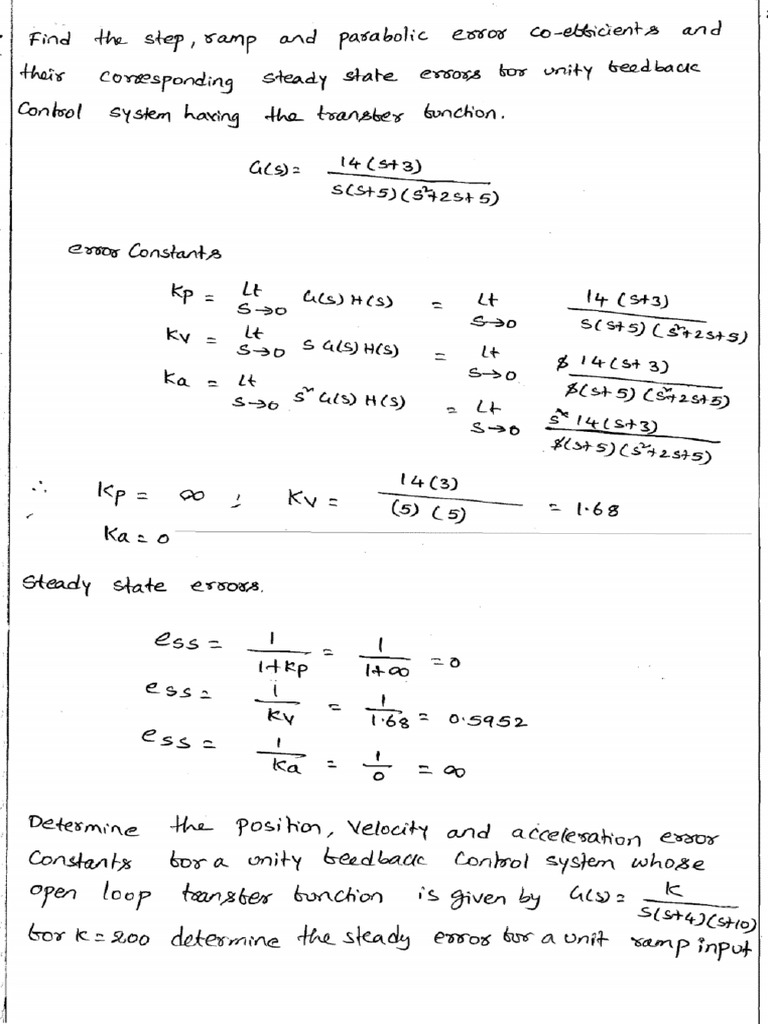 Find the step, ramp and parabolic error co-efficients and
their corresponding steady state errors for unity feedback
Control system having the transfer function.
G(s) = 14(s+3) / s(s+5)(s²+2s+5)
error Constants
Kp = Lt s→0 G(s) H(s) = Lt s→0 14(s+3) / s(s+5)(s²+2s+5)
Kv = Lt s→0 s G(s) H(s) = Lt s→0 s 14(s+3) / s(s+5)(s²+2s+5)
Ka = Lt s→0 s² G(s) H(s) = Lt s→0 s² 14(s+3) / s(s+5)(s²+2s+5)
∴ Kp = ∞ ; Kv = 14(3) / (5)(5) = 1.68
Ka = 0
Steady state errors.
ess = 1 / 1+Kp = 1 / 1+∞ = 0
ess = 1 / Kv = 1 / 1.68 = 0.5952
ess = 1 / Ka = 1 / 0 = ∞
Determine the Position, Velocity and acceleration error
Constants for a unity feedback Control system whose
open loop transfer function is given by G(s) = K / s(s+4)(s+10)
for K=200 determine the steady error for a unit ramp input